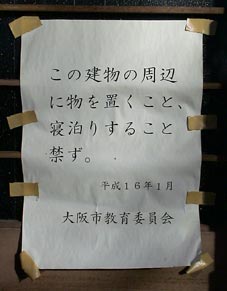 この建物の周辺
に物を置くこと、
寝泊りすること
禁ず。
平成16年1月
大阪市教育委員会